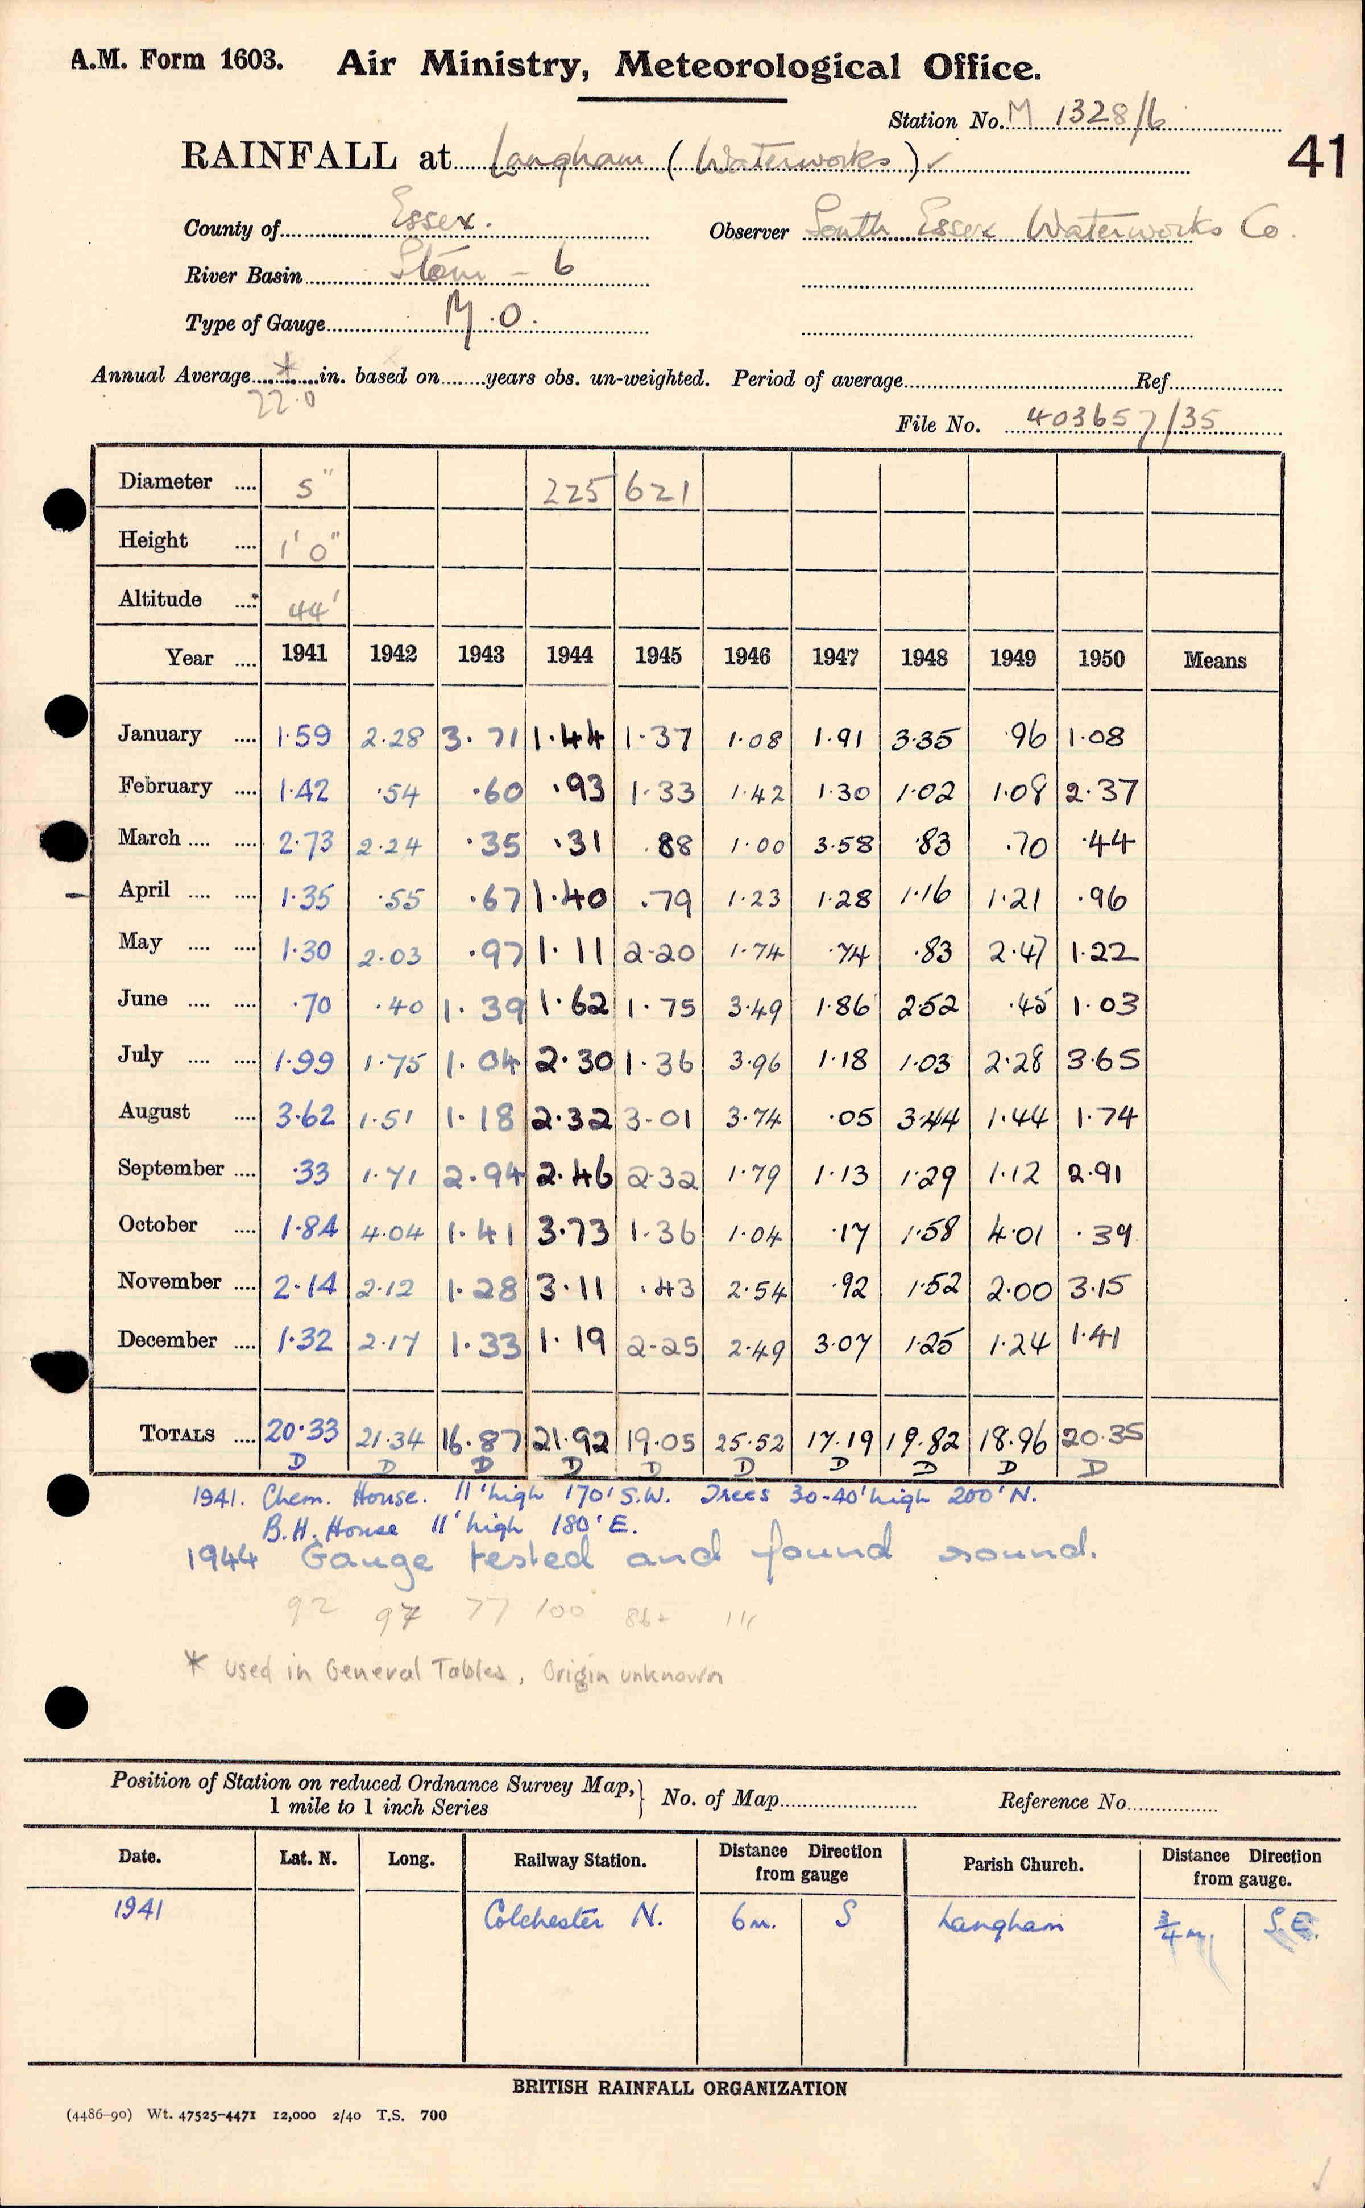 A.M. Form 1603. Air Ministry, Meteorological Office.
Station No. M 1328/6
RAINFALL at Langham (Waterworks) ✓ 41
County of Essex. Observer South Essex Waterworks Co.
River Basin Stour - 6
Type of Gauge M.O.
Annual Average * in. based on years obs. un-weighted. Period of average Ref
22.0
File No. 403657/35
Diameter .... 5" 225 621
Height .... 1' 0"
Altitude .... 44'
Year .... 1941 1942 1943 1944 1945 1946 1947 1948 1949 1950 Means
January .... 1.59 2.28 3.71 1.44 1.37 1.08 1.91 3.35 .96 1.08
February .... 1.42 .54 .60 .93 1.33 1.42 1.30 1.02 1.08 2.37
March .... .... 2.73 2.24 .35 .31 .88 1.00 3.58 .83 .70 .44
April .... .... 1.35 .55 .67 1.40 .79 1.23 1.28 1.16 1.21 .96
May .... .... 1.30 2.03 .97 1.11 2.20 1.74 .74 .83 2.47 1.22
June .... .... .70 .40 1.39 1.62 1.75 3.49 1.86 2.52 .45 1.03
July .... .... 1.99 1.75 1.04 2.30 1.36 3.96 1.18 1.03 2.28 3.65
August .... 3.62 1.51 1.18 2.32 3.01 3.74 .05 3.44 1.44 1.74
September .... .33 1.71 2.94 2.46 2.32 1.79 1.13 1.29 1.12 2.91
October .... 1.84 4.04 1.41 3.73 1.36 1.04 .17 1.58 4.01 .39
November .... 2.14 2.12 1.28 3.11 .43 2.54 .92 1.52 2.00 3.15
December .... 1.32 2.17 1.33 1.19 2.25 2.49 3.07 1.25 1.24 1.41
TOTALS .... 20.33 21.34 16.87 21.92 19.05 25.52 17.19 19.82 18.96 20.35
D D D D D D D D D D
1941. Chem. House. 11' high 170' S.W. Trees 30-40' high 200' N.
B.H. House 11' high 180' E.
1944 Gauge tested and found sound.
92 97 77 100 86+ 111
* Used in General Tables, Origin unknown
Position of Station on reduced Ordnance Survey Map, } No. of Map Reference No.
1 mile to 1 inch Series
Date. Lat. N. Long. Railway Station. Distance Direction from gauge Parish Church. Distance Direction from gauge.
1941 Colchester N. 6m. S Langham ¾ m. S.E.
BRITISH RAINFALL ORGANIZATION
(4486-90) Wt. 47525-4471 12,000 2/40 T.S. 700